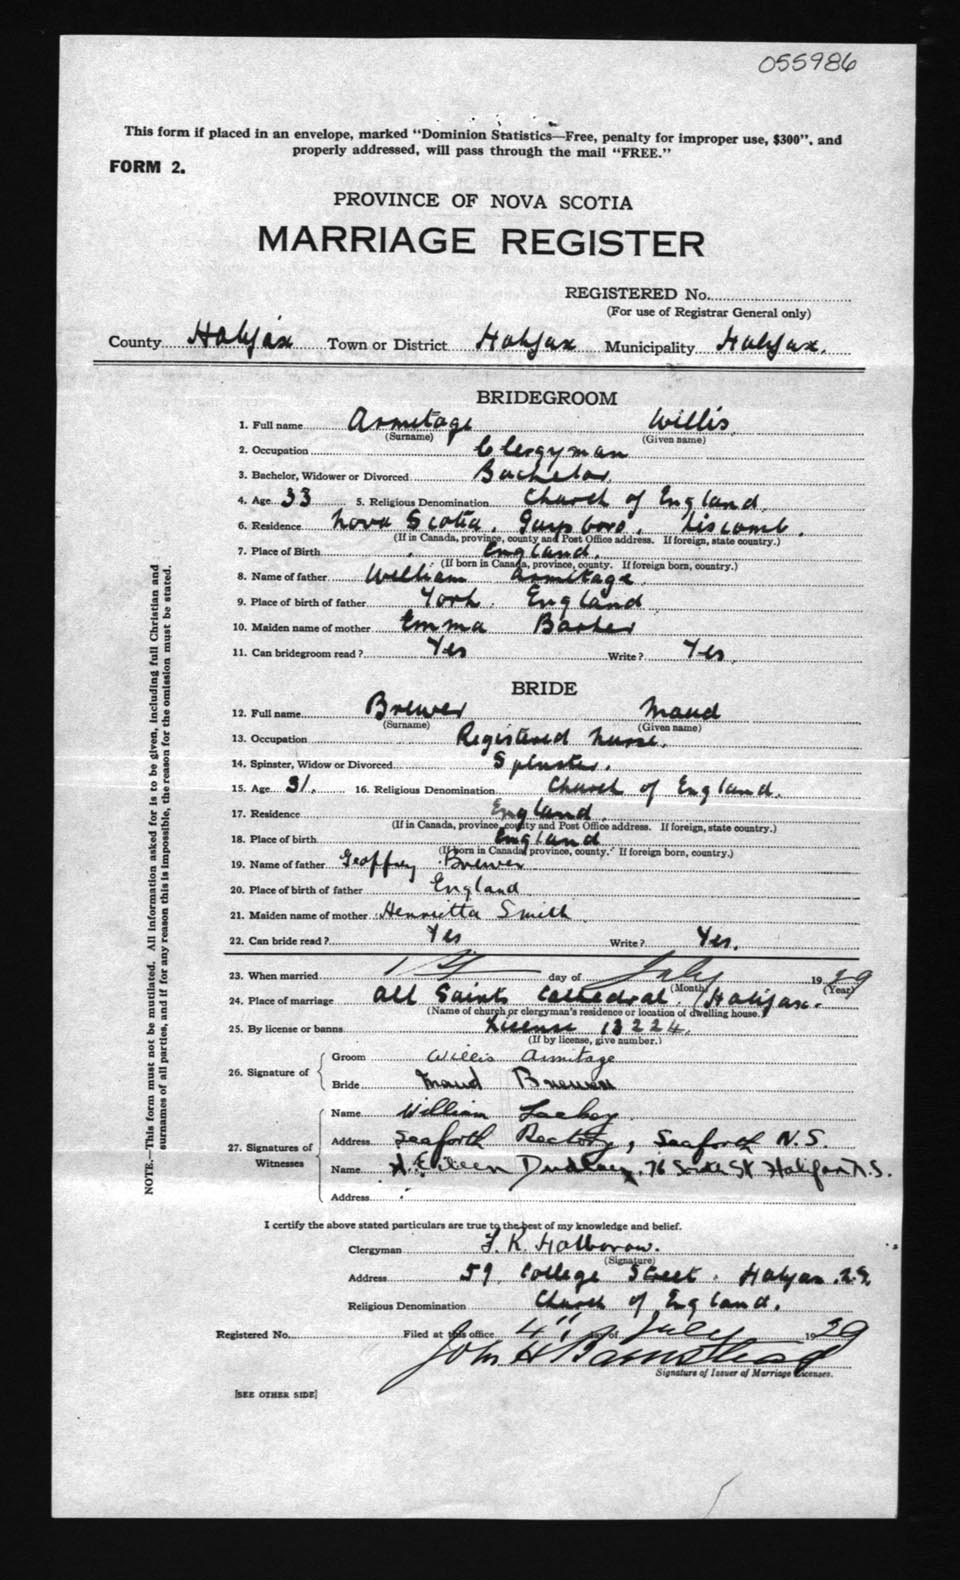 055986
This form if placed in an envelope, marked "Dominion Statistics—Free, penalty for improper use, $300", and
properly addressed, will pass through the mail "FREE."
FORM 2.
PROVINCE OF NOVA SCOTIA
MARRIAGE REGISTER
REGISTERED No.
(For use of Registrar General only)
County Halifax Town or District Halifax Municipality Halifax.
BRIDEGROOM
1. Full name Armitage Willis
(Surname) (Given name)
2. Occupation Clergyman
3. Bachelor, Widower or Divorced Bachelor
4. Age 33 5. Religious Denomination Church of England
6. Residence Nova Scotia. Guysboro. Liscomb.
(If in Canada, province, county and Post Office address. If foreign, state country.)
7. Place of Birth England.
(If born in Canada, province, county. If foreign born, country.)
8. Name of father William Armitage.
9. Place of birth of father York. England
10. Maiden name of mother Emma Barker
11. Can bridegroom read? Yes Write? Yes.
BRIDE
12. Full name Brewer Maud
(Surname) (Given name)
13. Occupation Registered nurse.
14. Spinster, Widow or Divorced Spinster.
15. Age 31. 16. Religious Denomination Church of England.
17. Residence England.
(If in Canada, province, county and Post Office address. If foreign, state country.)
18. Place of birth England
(If born in Canada, province, county. If foreign born, country.)
19. Name of father Geoffrey Brewer
20. Place of birth of father England
21. Maiden name of mother Henrietta Smith
22. Can bride read? Yes Write? Yes.
23. When married 1st day of July 1929
(Month) (Year)
24. Place of marriage All Saints Cathedral. Halifax.
(Name of church or clergyman's residence or location of dwelling house.)
25. By license or banns License 13224.
(If by license, give number.)
26. Signature of
Groom Willis Armitage
Bride Maud Brewer
27. Signatures of Witnesses
Name William
Address Seaforth Rectory, Seaforth N.S.
Name Eileen 76 St Halifax N.S.
Address
I certify the above stated particulars are true to the best of my knowledge and belief.
Clergyman
(Signature)
Address 59 College Street. Halifax. N.S.
Religious Denomination Church of England.
Registered No. Filed at this office 4" day of July 1929
John H Barnstead
Signature of Issuer of Marriage Licenses.
[SEE OTHER SIDE]
NOTE.—This form must not be mutilated. All information asked for is to be given, including full Christian and
surnames of all parties, and if for any reason this is impossible, the reason for the omission must be stated.